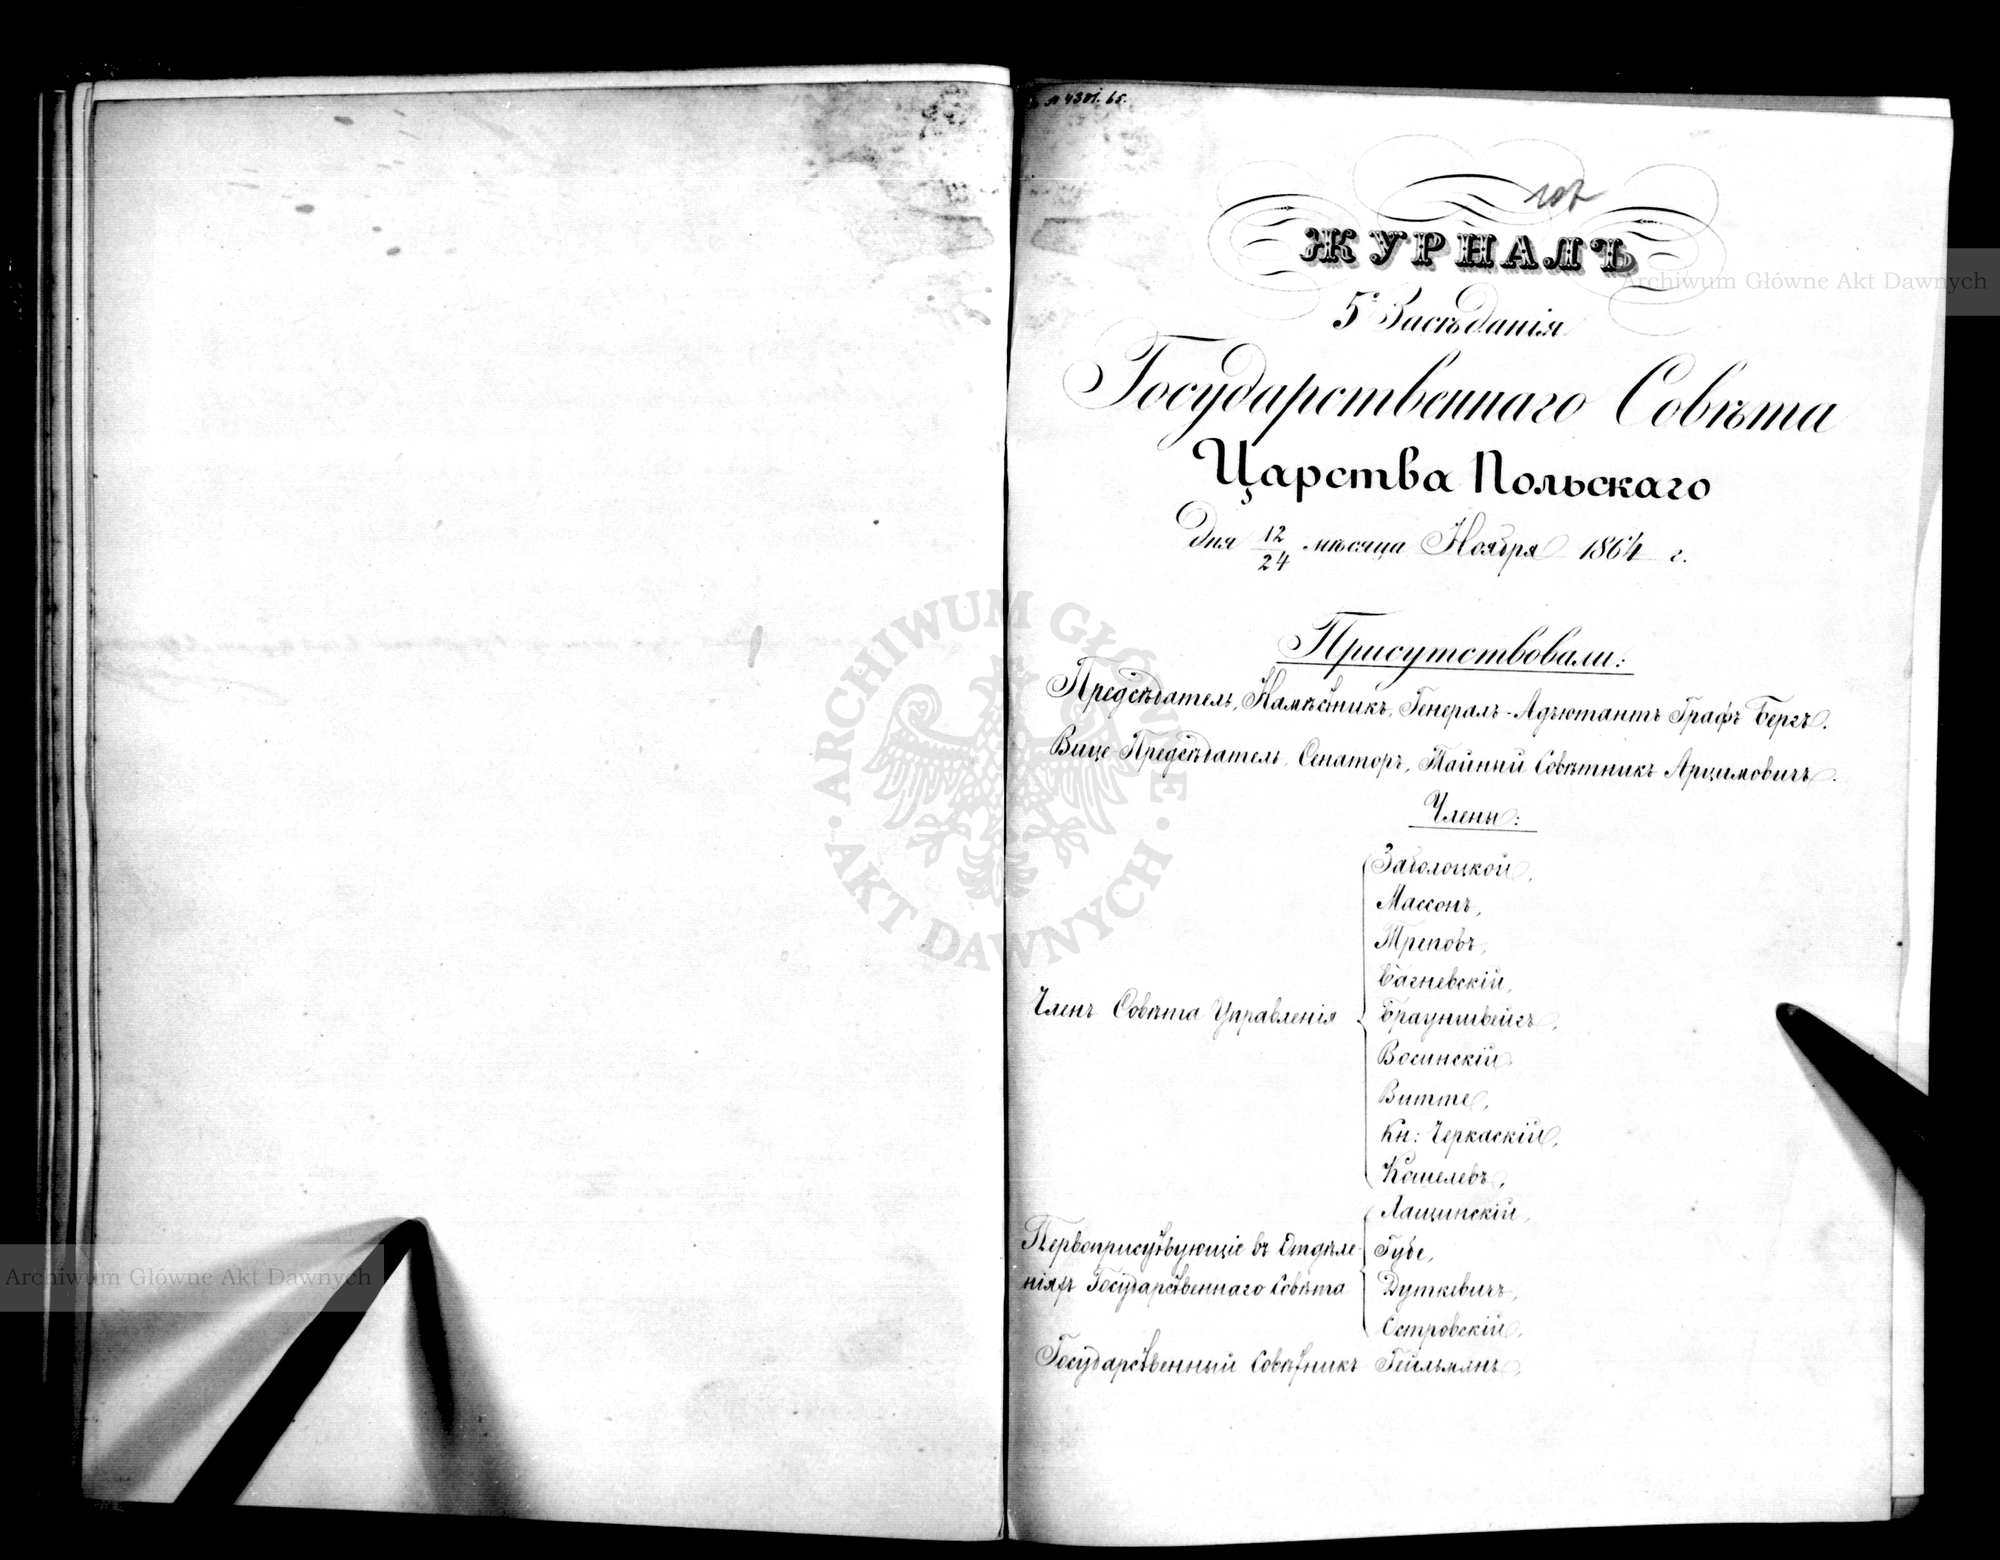 107
ЖУРНАЛЪ
5го Засѣданія
Государственнаго Совѣта
Царства Польскаго
Дня 12/24 мѣсяца Ноября 1864 г.
Присутствовали:
Предсѣдатель, Намѣстникъ, Генералъ-Адъютантъ Графъ Бергъ.
Вице Предсѣдатель, Сенаторъ, Тайный Совѣтникъ Арцимовичъ.
Члены:
Заболоцкой,
Массонъ,
Треповъ,
Багневскій,
Членъ Совѣта Управленія
Брауншвейгъ,
Восинскій
Витте,
Кн: Черкаскій,
Кошелевъ,
Лащинскій,
Первоприсутствующіе въ Отдѣле-
Губе,
ніяхъ Государственнаго Совѣта
Дуткевичъ,
Островскій,
Государственный Совѣтникъ Гейльманъ,
Archiwum Główne Akt Dawnych
ARCHIWUM GŁÓWNE · AKT DAWNYCH ·
Archiwum Główne Akt Dawnych